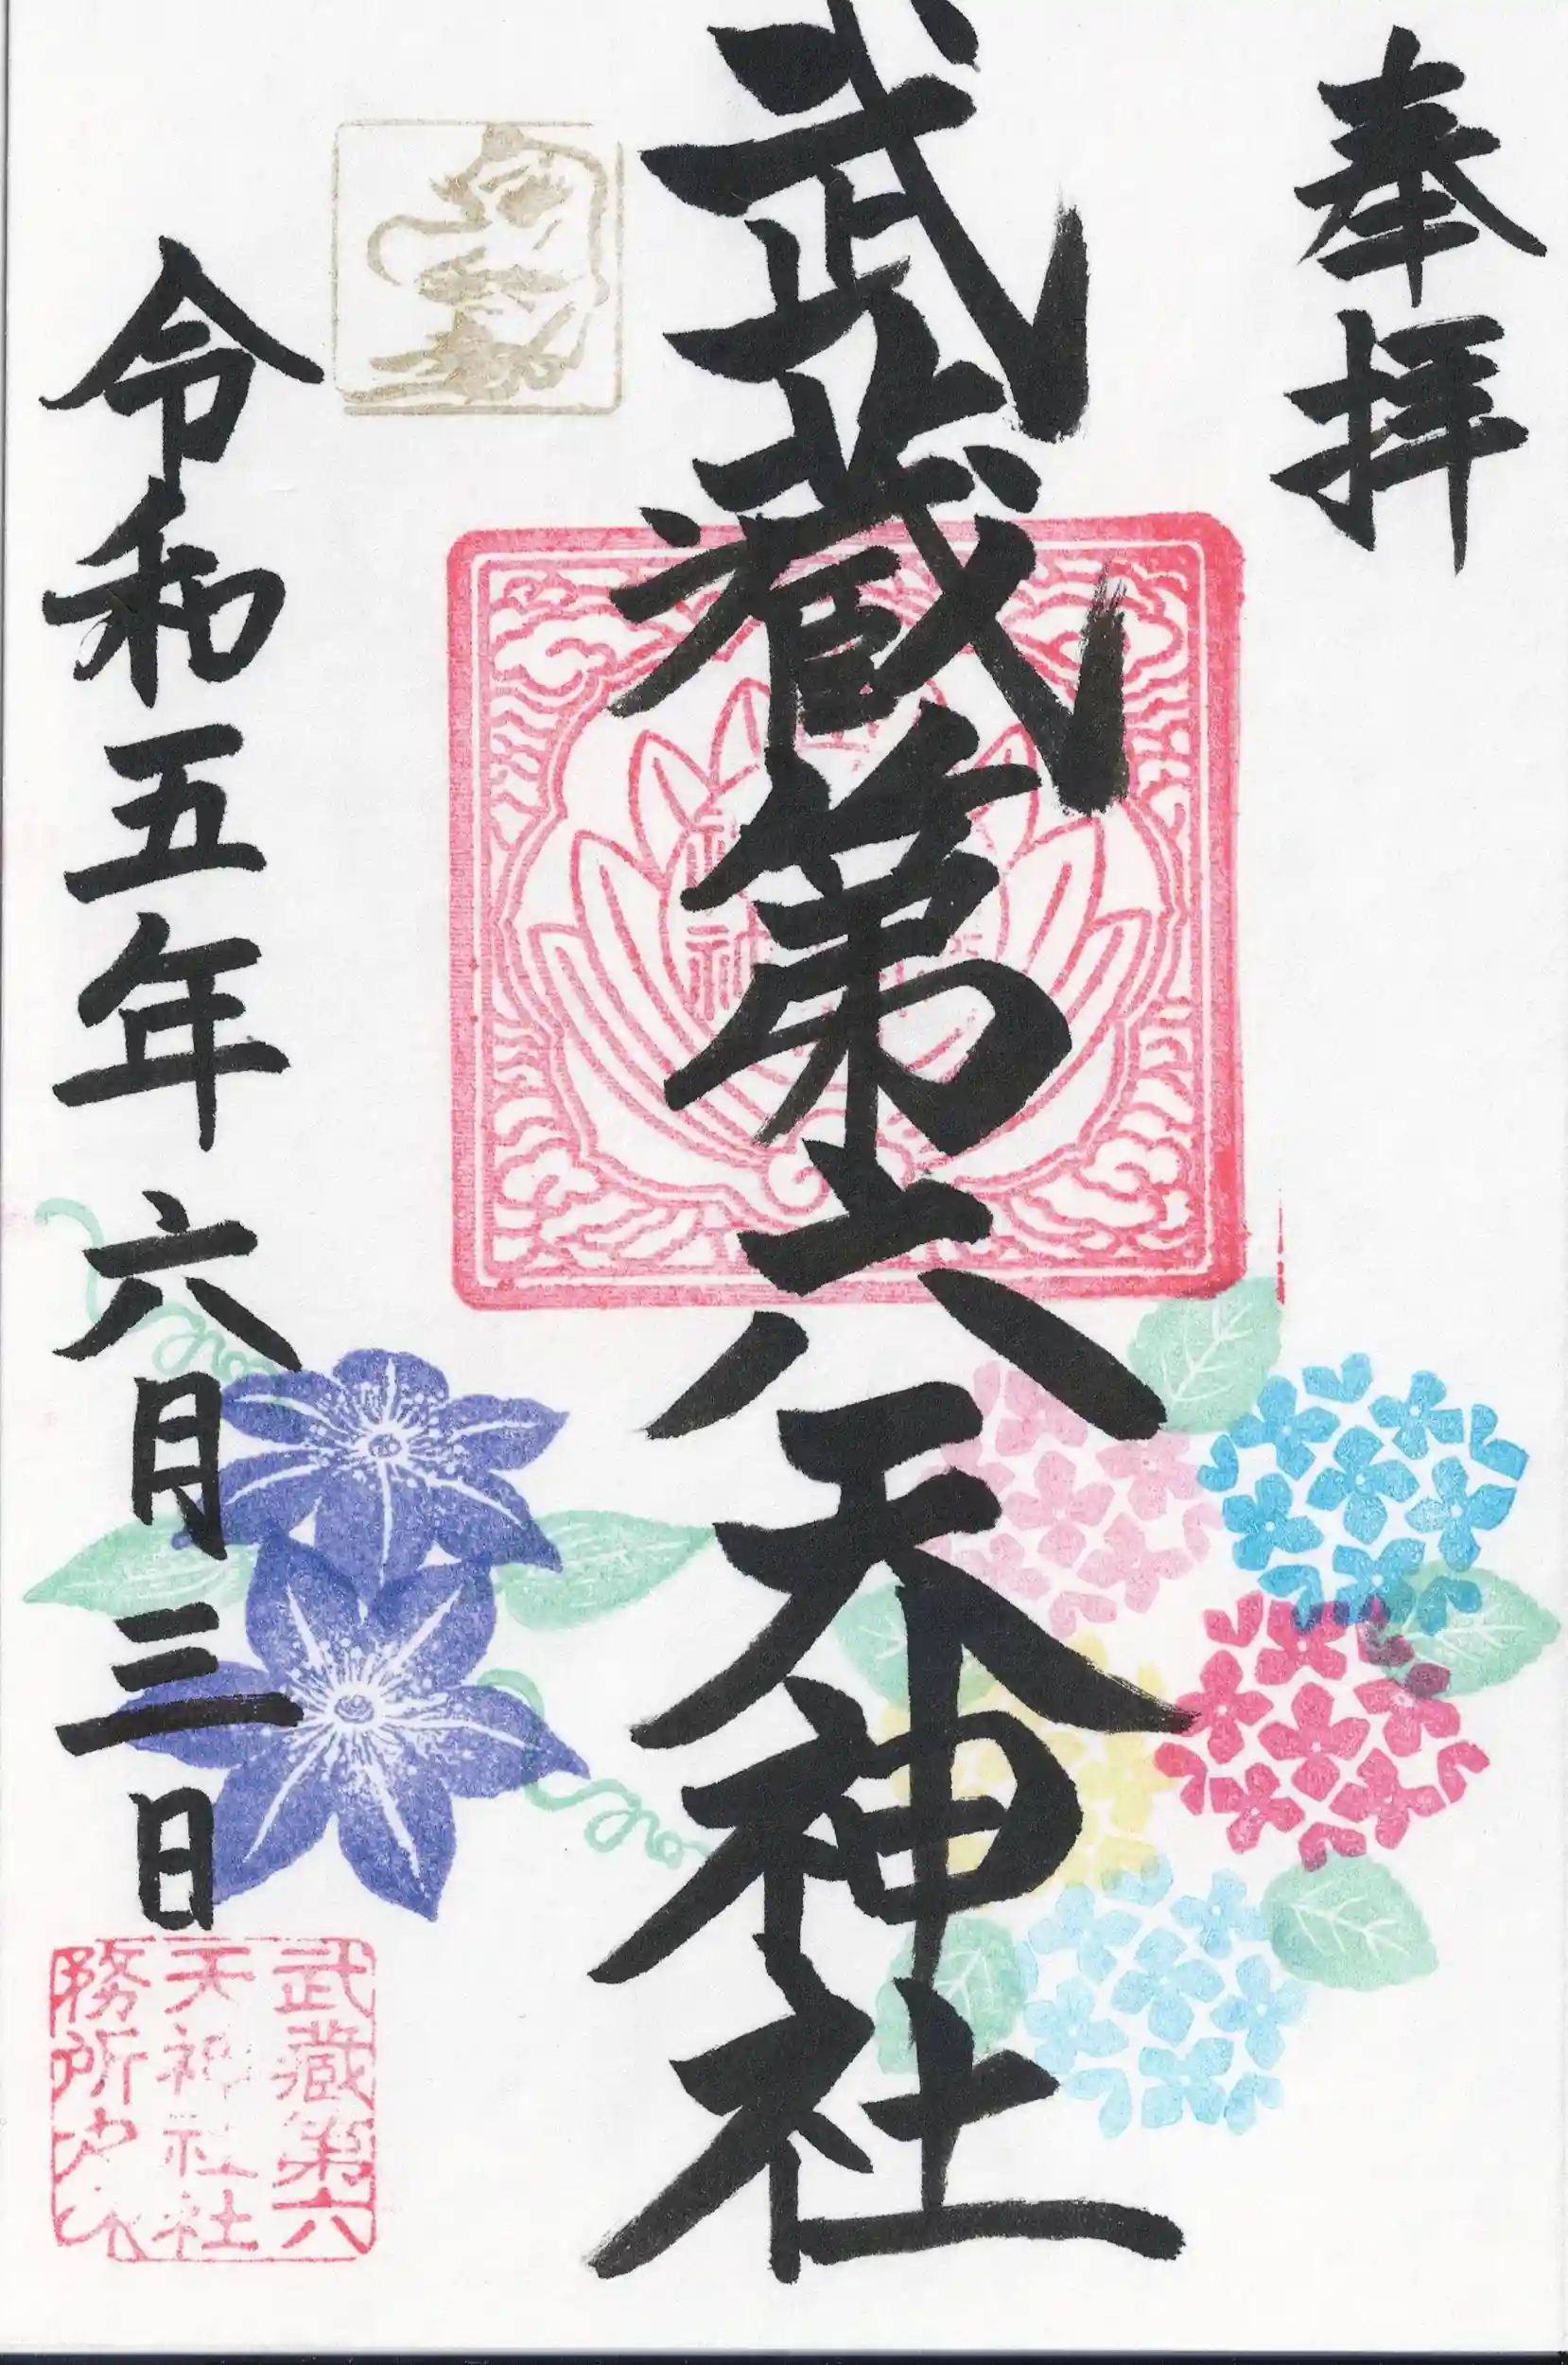 奉拝
武蔵第六天神社
令和五年六月三日
武蔵第六
天神社社
務所之